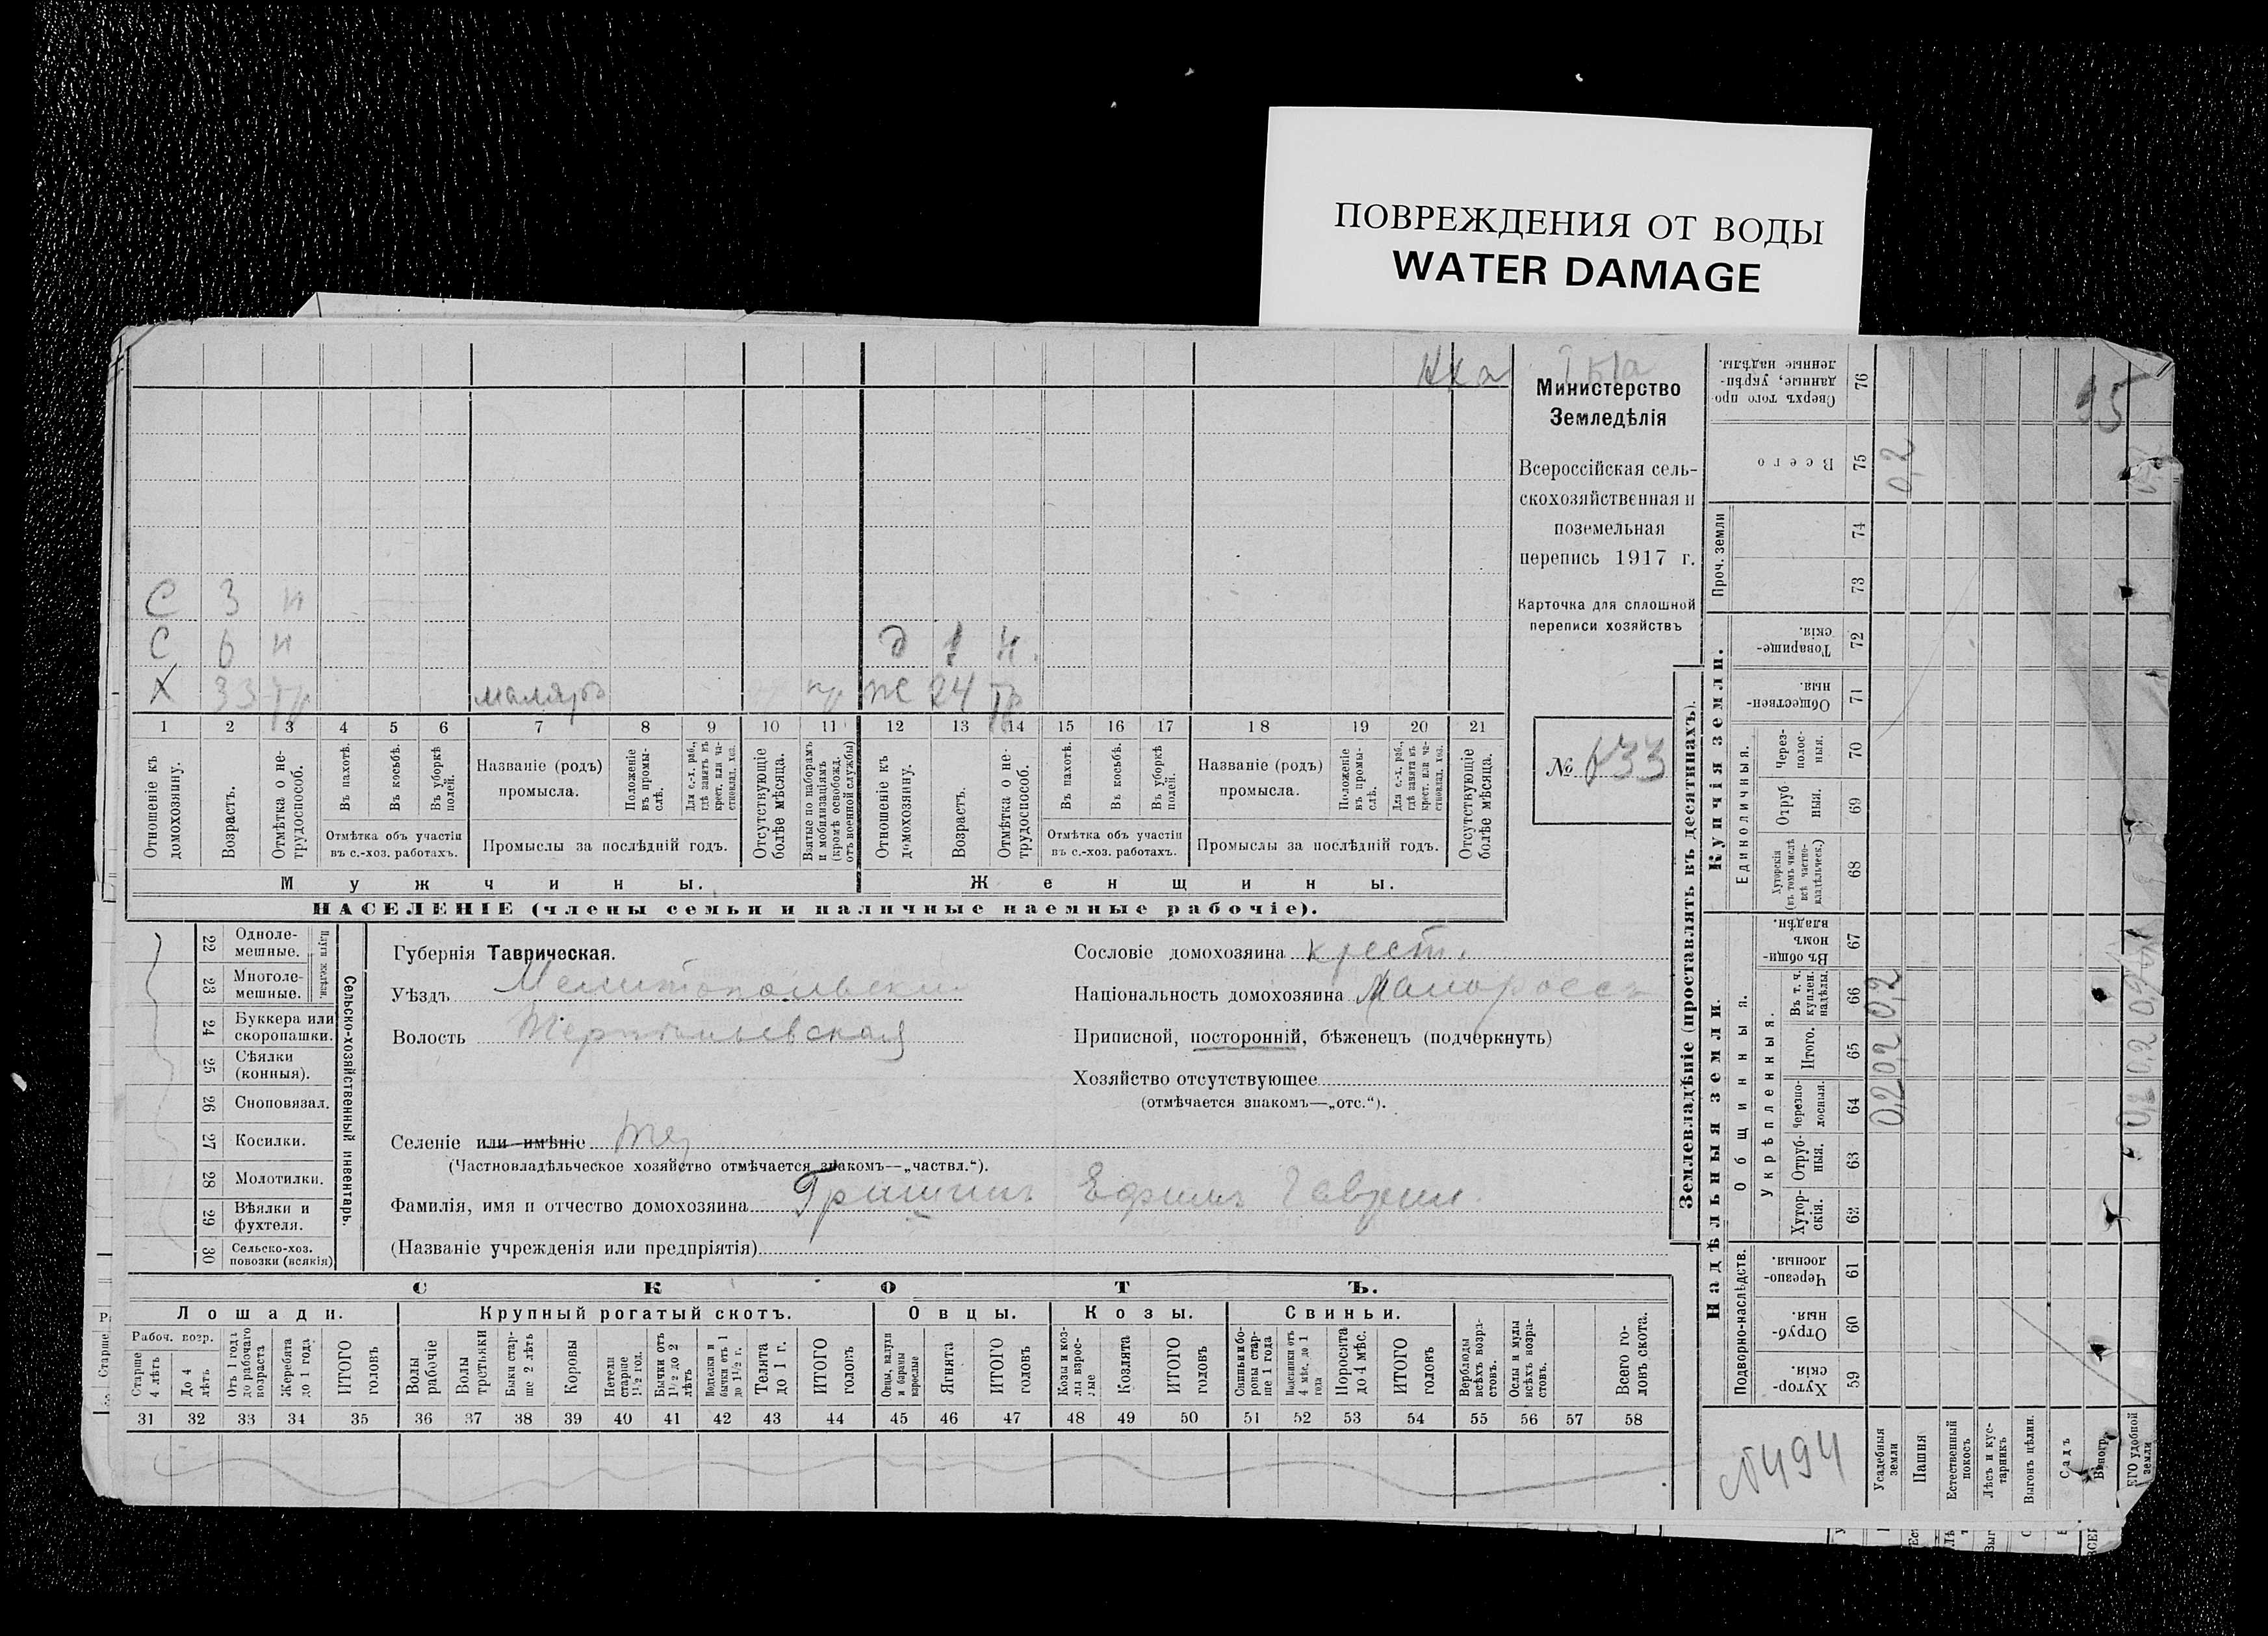 ПОВРЕЖДЕНИЯ ОТ ВОДЫ
WATER DAMAGE
Министерство
Земледѣлія
Всероссійская сель-
скохозяйственная и
поземельная
перепись 1917 г.
Карточка для сплошной
переписи хозяйствъ
№ 633
С 3 н
С 6 н д 1 н.
Х 33 маляръ ж 24
1 2 3 4 5 6 7 8 9 10 11 12 13 14 15 16 17 18 19 20 21
Отношеніе къ домохозяину.
Возрастъ.
Отмѣтка о не-трудоспособ.
Въ пахотѣ.
Въ косьбѣ.
Въ уборкѣ полей.
Отмѣтка объ участіи
въ с.-хоз. работахъ.
Названіе (родъ)
промысла.
Положеніе въ промы-слѣ.
Для с.-х. раб., гдѣ занятъ въ крест. или ча-стновлад. хоз.
Промыслы за послѣдній годъ.
Отсутствующіе болѣе мѣсяца.
Взятые по наборамъ и мобилизаціямъ (кромѣ освобожд. отъ военной службы)
Отношеніе къ домохозяину.
Возрастъ.
Отмѣтка о не-трудоспособ.
Въ пахотѣ.
Въ косьбѣ.
Въ уборкѣ полей.
Отмѣтка объ участіи
въ с.-хоз. работахъ.
Названіе (родъ)
промысла.
Положеніе въ промы-слѣ.
Для с.-х. раб., гдѣ занята въ крест. или ча-стновлад. хоз.
Промыслы за послѣдній годъ.
Отсутствующіе болѣе мѣсяца.
Мужчины. Женщины.
НАСЕЛЕНІЕ (члены семьи и наличные наемные рабочіе).
22 Одноле-мешные.
23 Многоле-мешные.
Плуги желѣзн.
24 Буккера или скоропашки.
25 Сѣялки (конныя).
26 Сноповязал.
27 Косилки.
28 Молотилки.
29 Вѣялки и фухтеля.
30 Сельско-хоз. повозки (всякія)
Сельско-хозяйственный инвентарь.
Губернія Таврическая.
Уѣздъ Мелитопольский
Волость
Сословіе домохозяина крест.
Національность домохозяина Малороссъ
Приписной, посторонній, бѣженецъ (подчеркнуть)
Хозяйство отсутствующее
(отмѣчается знакомъ—„отс.“).
Селеніе или имѣніе
(Частновладѣльческое хозяйство отмѣчается знакомъ—„частвл.“).
Фамилія, имя и отчество домохозяина Гришинъ Ефимъ
(Названіе учрежденія или предпріятія)
СКОТЪ.
Лошади. Крупный рогатый скотъ. Овцы. Козы. Свиньи.
Рабоч. возр.
Старше 4 лѣтъ
До 4 лѣтъ
Отъ 1 года до рабочаго возраста
Жеребята до 1 года
ИТОГО головъ
Волы рабочіе
Волы третьяки
Быки стар-ше 2 лѣтъ
Коровы
Нетели старше 1½ год.
Бычки отъ 1½ до 2 лѣтъ
Подтелки и бычки отъ 1 до 1½ г.
Телята до 1 г.
ИТОГО головъ
Овцы, валухи и бараны взрослые
Ягнята
ИТОГО головъ
Козы и коз-лы взрос-лые
Козлята
ИТОГО головъ
Свиньи и бо-ровы стар-ше 1 года
Подсвинки отъ 4 мѣс. до 1 года
Поросята до 4 мѣс.
ИТОГО головъ
Верблюды всѣхъ возра-стовъ.
Ослы и мулы всѣхъ возра-стовъ.
Всего го-ловъ скота.
31 32 33 34 35 36 37 38 39 40 41 42 43 44 45 46 47 48 49 50 51 52 53 54 55 56 57 58
Землевладѣніе (проставлять въ десятинахъ).
Надѣльныя земли.
Купчія земли.
Проч. земли
Подворно-наслѣдств.
Общинныя.
Укрѣпленныя.
Единоличныя.
Сверхъ того про-данные, укрѣп-ленные надѣлы. 76
Всего 75
74
73
Товарище-скія. 72
Обществен-ныя. 71
Через-полос-ныя. 70
Отруб-ныя. 69
Хуторскія (въ томъ числѣ всѣ частно-владѣльческ.) 68
Въ общин-номъ владѣн. 67
Въ т. ч. куплен. надѣлы. 66
Итого. 65
Черезпо-лосныя. 64
Отруб-ныя. 63
Хутор-скія. 62
Черезпо-лосныя. 61
Отруб-ныя. 60
Хутор-скія. 59
0,2
0,2 0,2 0,2
15
№494
Усадебныя земли
Пашня
Естественный покосъ
Лѣсъ и кус-тарникъ
Выгонъ цѣлин.
Садъ
Виногр.
ЕГО удобной земли